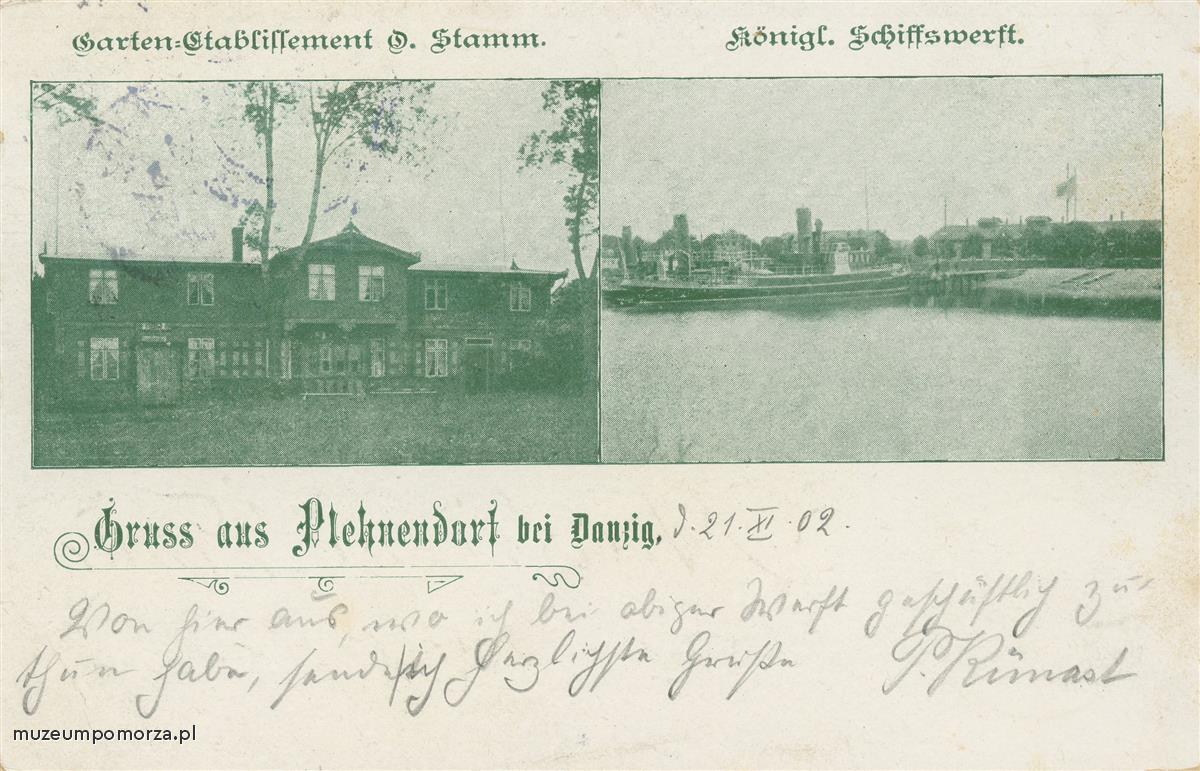 Garten-Etablissement O. Stamm.
Königl. Schiffswerft.
Gruss aus Plehnendorf bei Danzig, d. 21. XI. 02.
Von hier aus, wo ich bei obiger Werft geschäftlich zu
thun habe, sende ich herzlichste Grüße
muzeumpomorza.pl